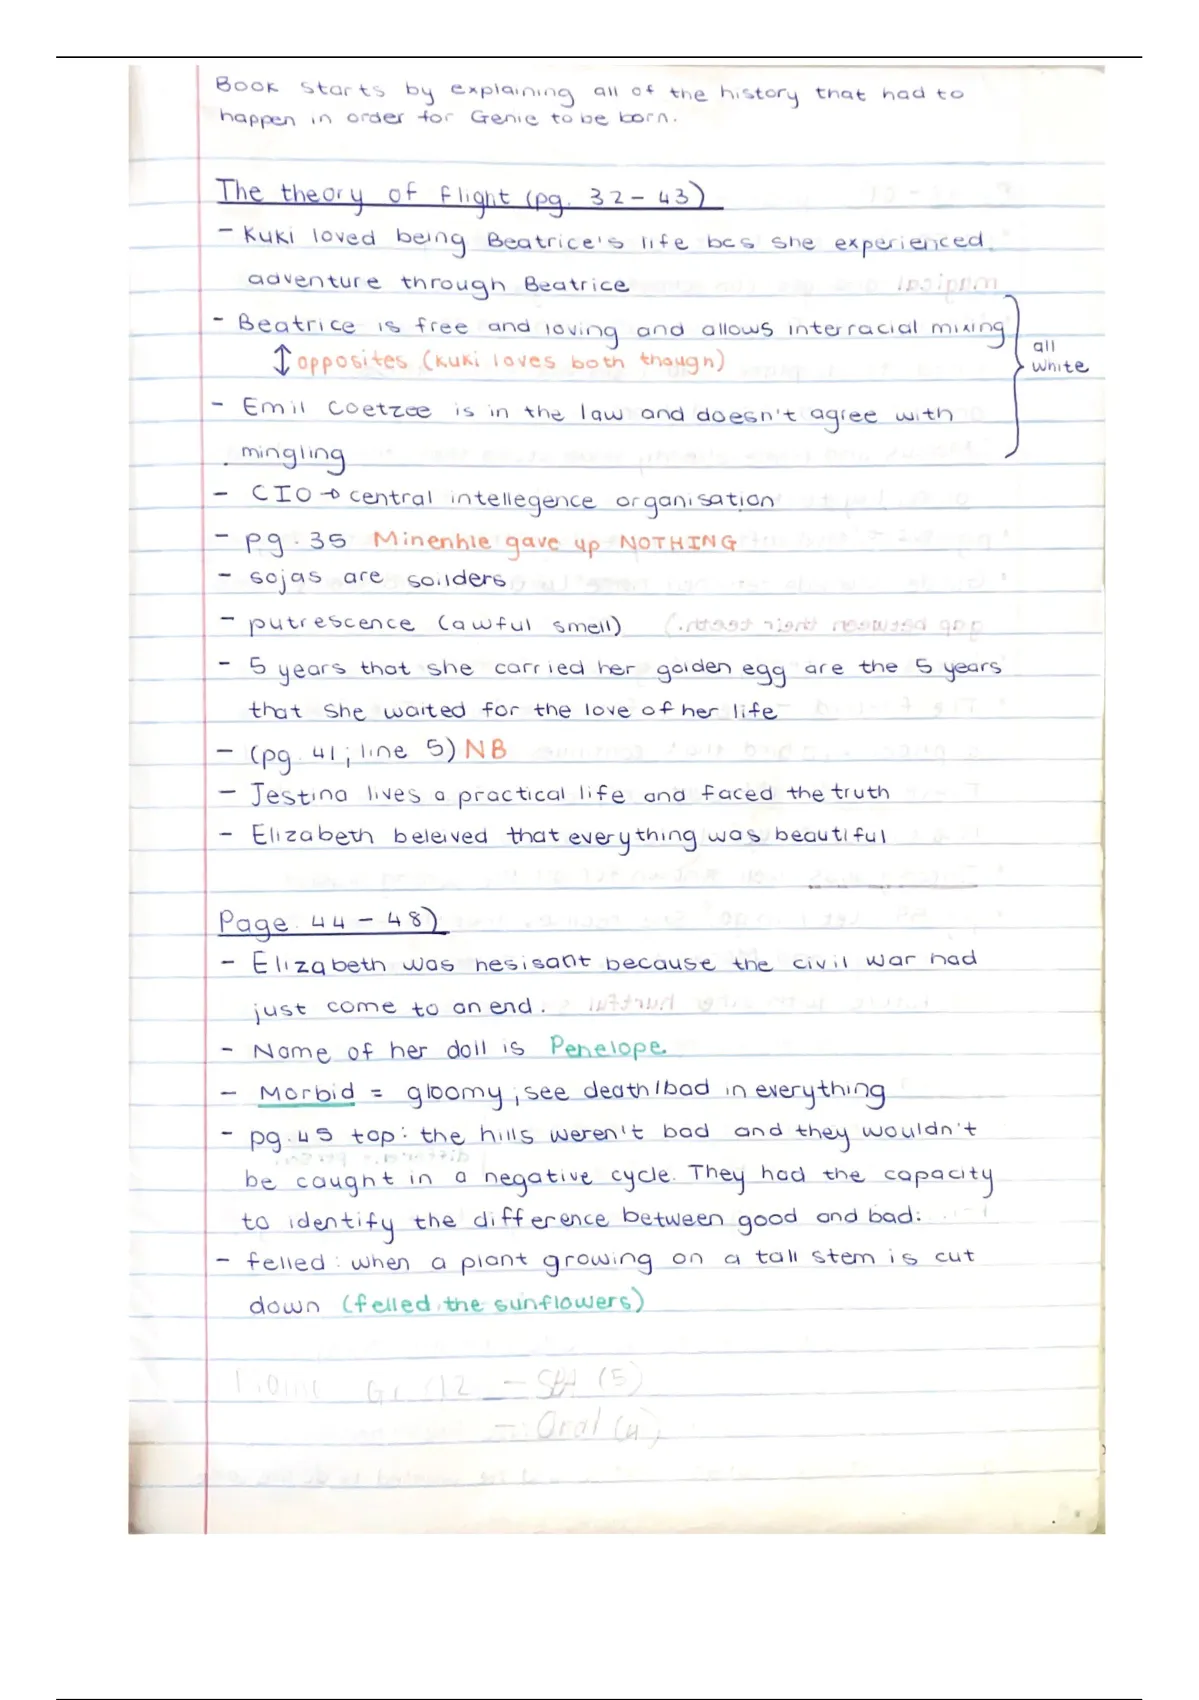 Book starts by explaining all of the history that had to
happen in order for Genie to be born.
The theory of flight (pg. 32 - 43)
- Kuki loved being Beatrice's life bcs she experienced
adventure through Beatrice
- Beatrice is free and loving and allows interracial mixing
↕ opposites (Kuki loves both though)
all
white
- Emil Coetzee is in the law and doesn't agree with
mingling
- CIO → central intellegence organisation
- pg. 35 Minenhle gave up NOTHING
- sojas are soilders
- putrescence (awful smell)
- 5 years that she carried her golden egg are the 5 years
that she waited for the love of her life
- (pg. 41; line 5) NB
- Jestina lives a practical life and faced the truth
- Elizabeth beleived that everything was beautiful
Page 44 - 48)
- Elizabeth was hesisant because the civil war had
just come to an end.
- Name of her doll is Penelope
- Morbid = gloomy; see death/bad in everything
- pg. 45 top: the hills weren't bad and they wouldn't
be caught in a negative cycle. They had the capacity
to identify the difference between good and bad.
- felled: when a plant growing on a tall stem is cut
down (felled the sunflowers)
- Oral (4)